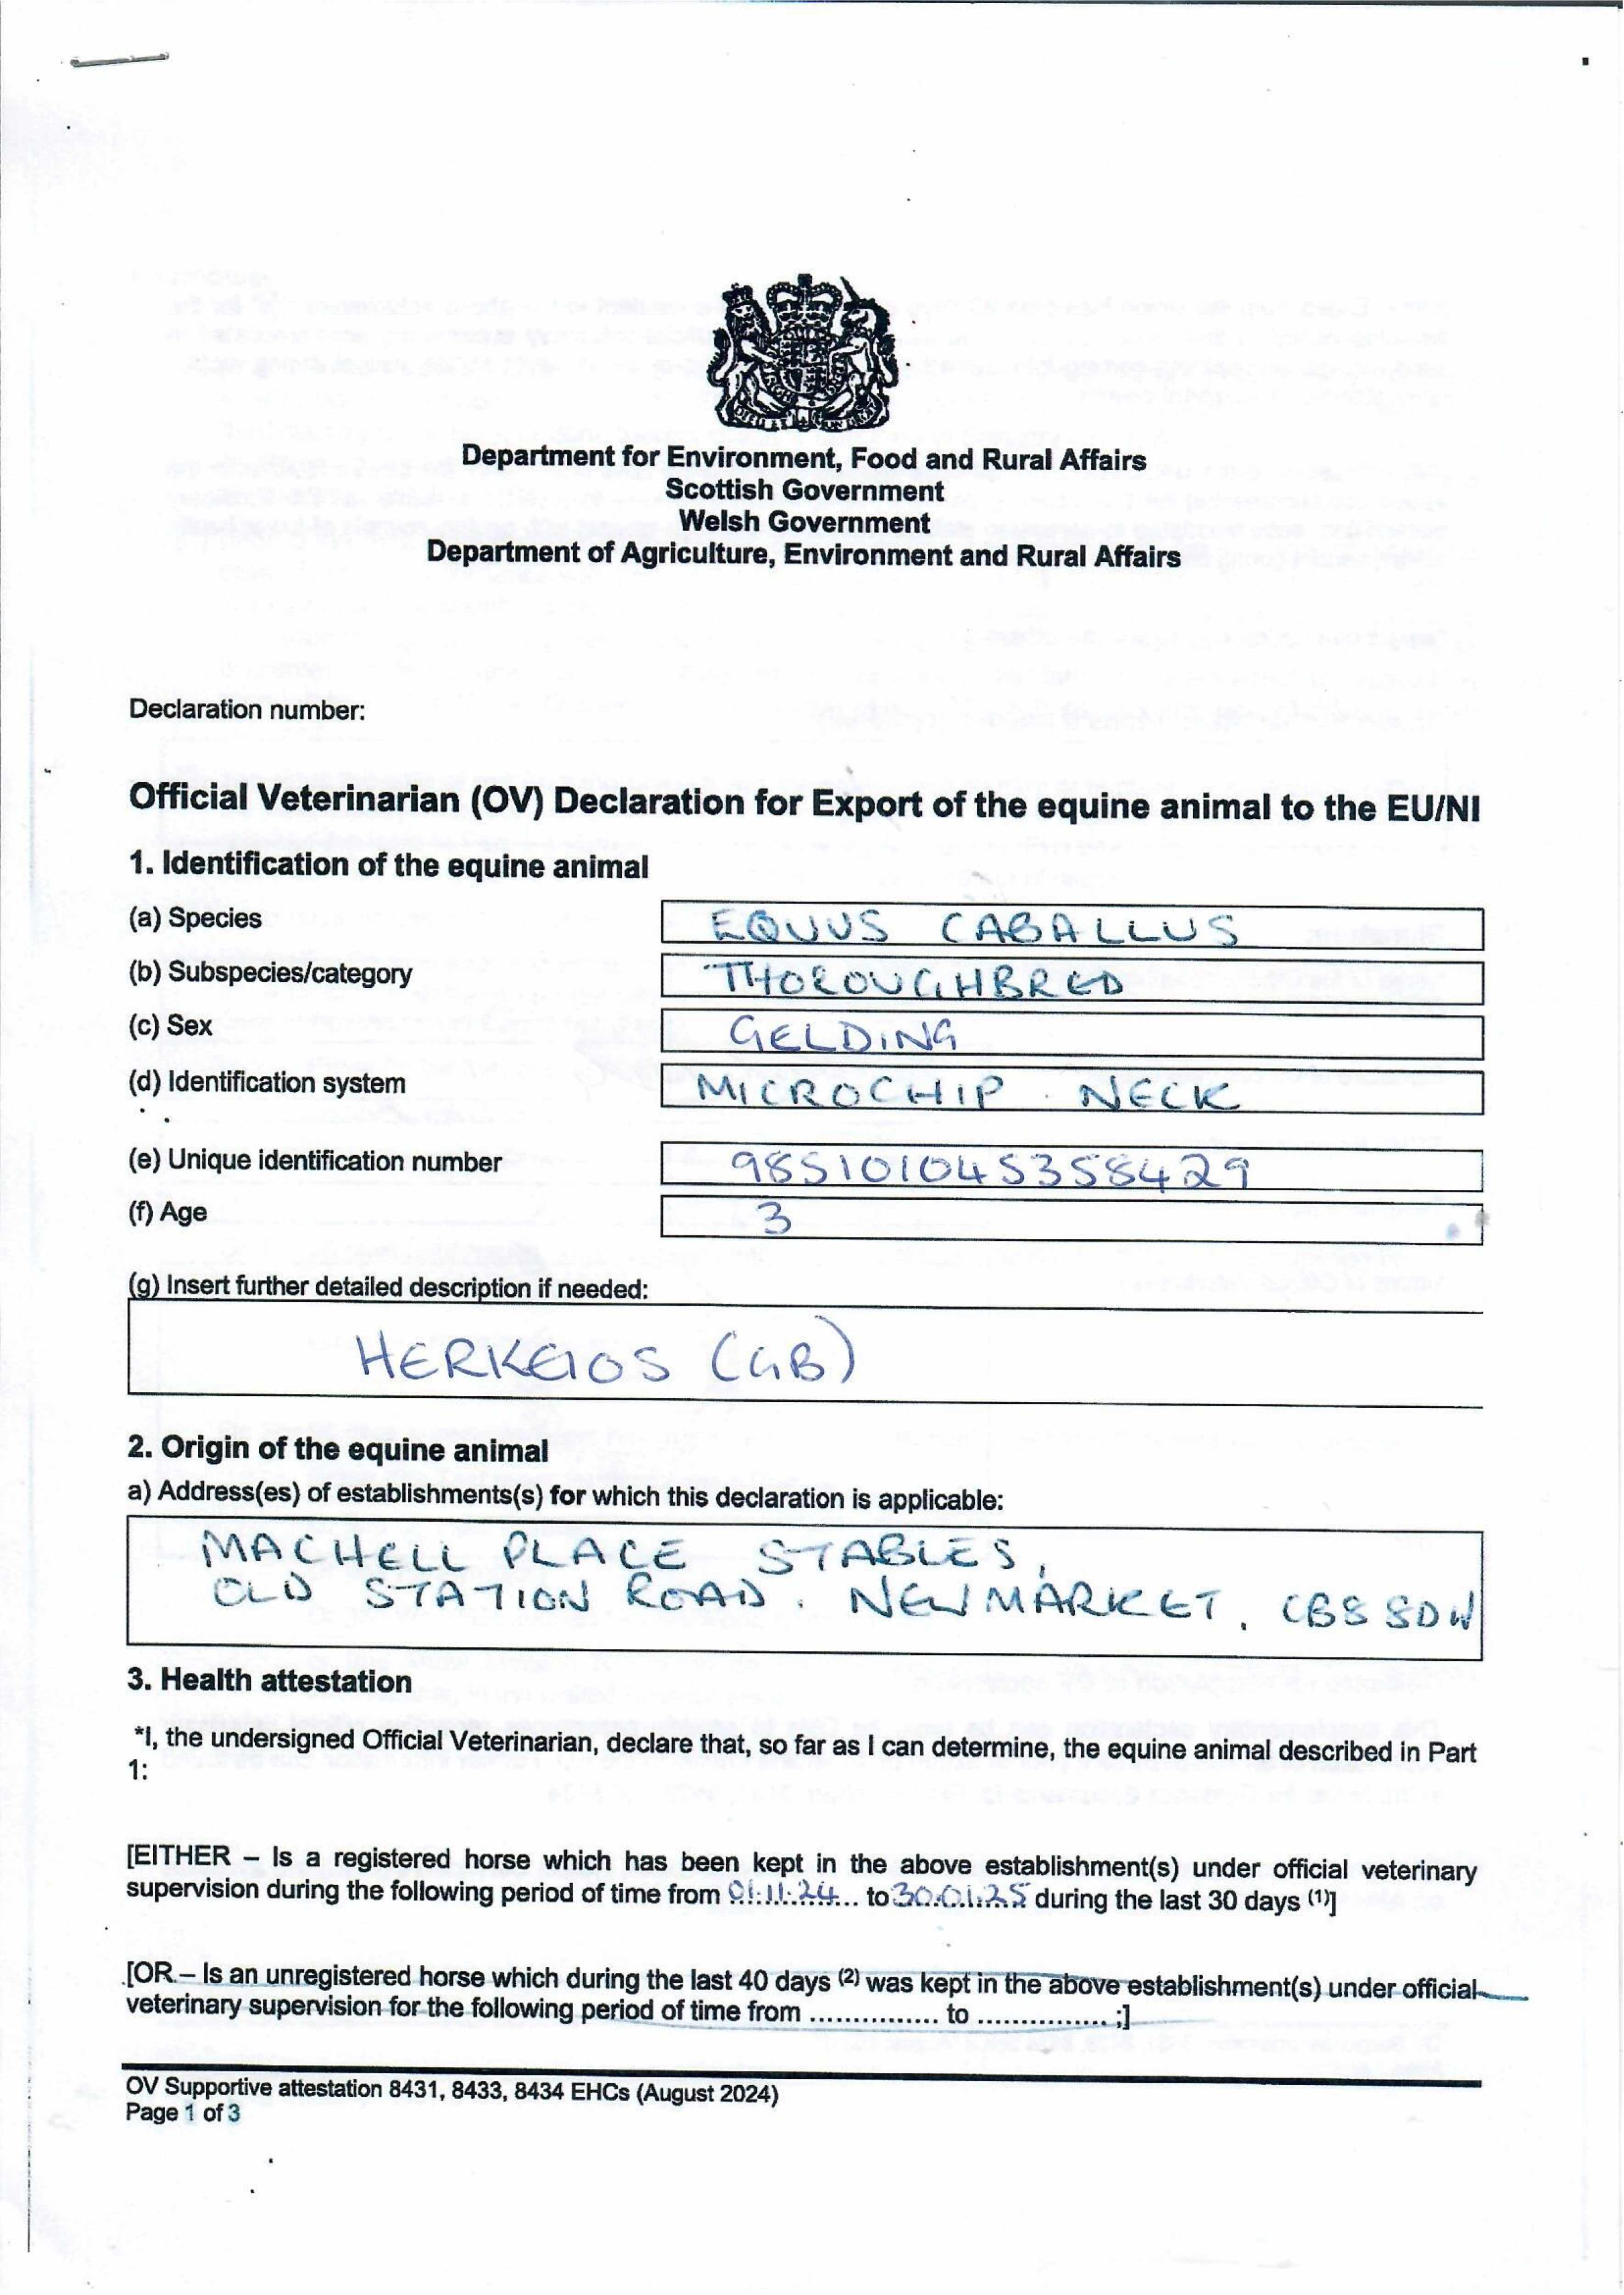 Department for Environment, Food and Rural Affairs
Scottish Government
Welsh Government
Department of Agriculture, Environment and Rural Affairs
Declaration number:
Official Veterinarian (OV) Declaration for Export of the equine animal to the EU/NI
1. Identification of the equine animal
(a) Species EQUUS CABALLUS
(b) Subspecies/category THOROUGHBRED
(c) Sex GELDING
(d) Identification system MICROCHIP NECK
(e) Unique identification number 985101045358429
(f) Age 3
(g) Insert further detailed description if needed:
HERKEIOS (GB)
2. Origin of the equine animal
a) Address(es) of establishments(s) for which this declaration is applicable:
MACHELL PLACE STABLES,
OLD STATION ROAD. NEWMARKET, CB8 8DW
3. Health attestation
*I, the undersigned Official Veterinarian, declare that, so far as I can determine, the equine animal described in Part
1:
[EITHER – Is a registered horse which has been kept in the above establishment(s) under official veterinary
supervision during the following period of time from 01.11.24 to 30.01.25 during the last 30 days (1)]
[OR – Is an unregistered horse which during the last 40 days (2) was kept in the above establishment(s) under official
veterinary supervision for the following period of time from ............... to ............... ;]
OV Supportive attestation 8431, 8433, 8434 EHCs (August 2024)
Page 1 of 3